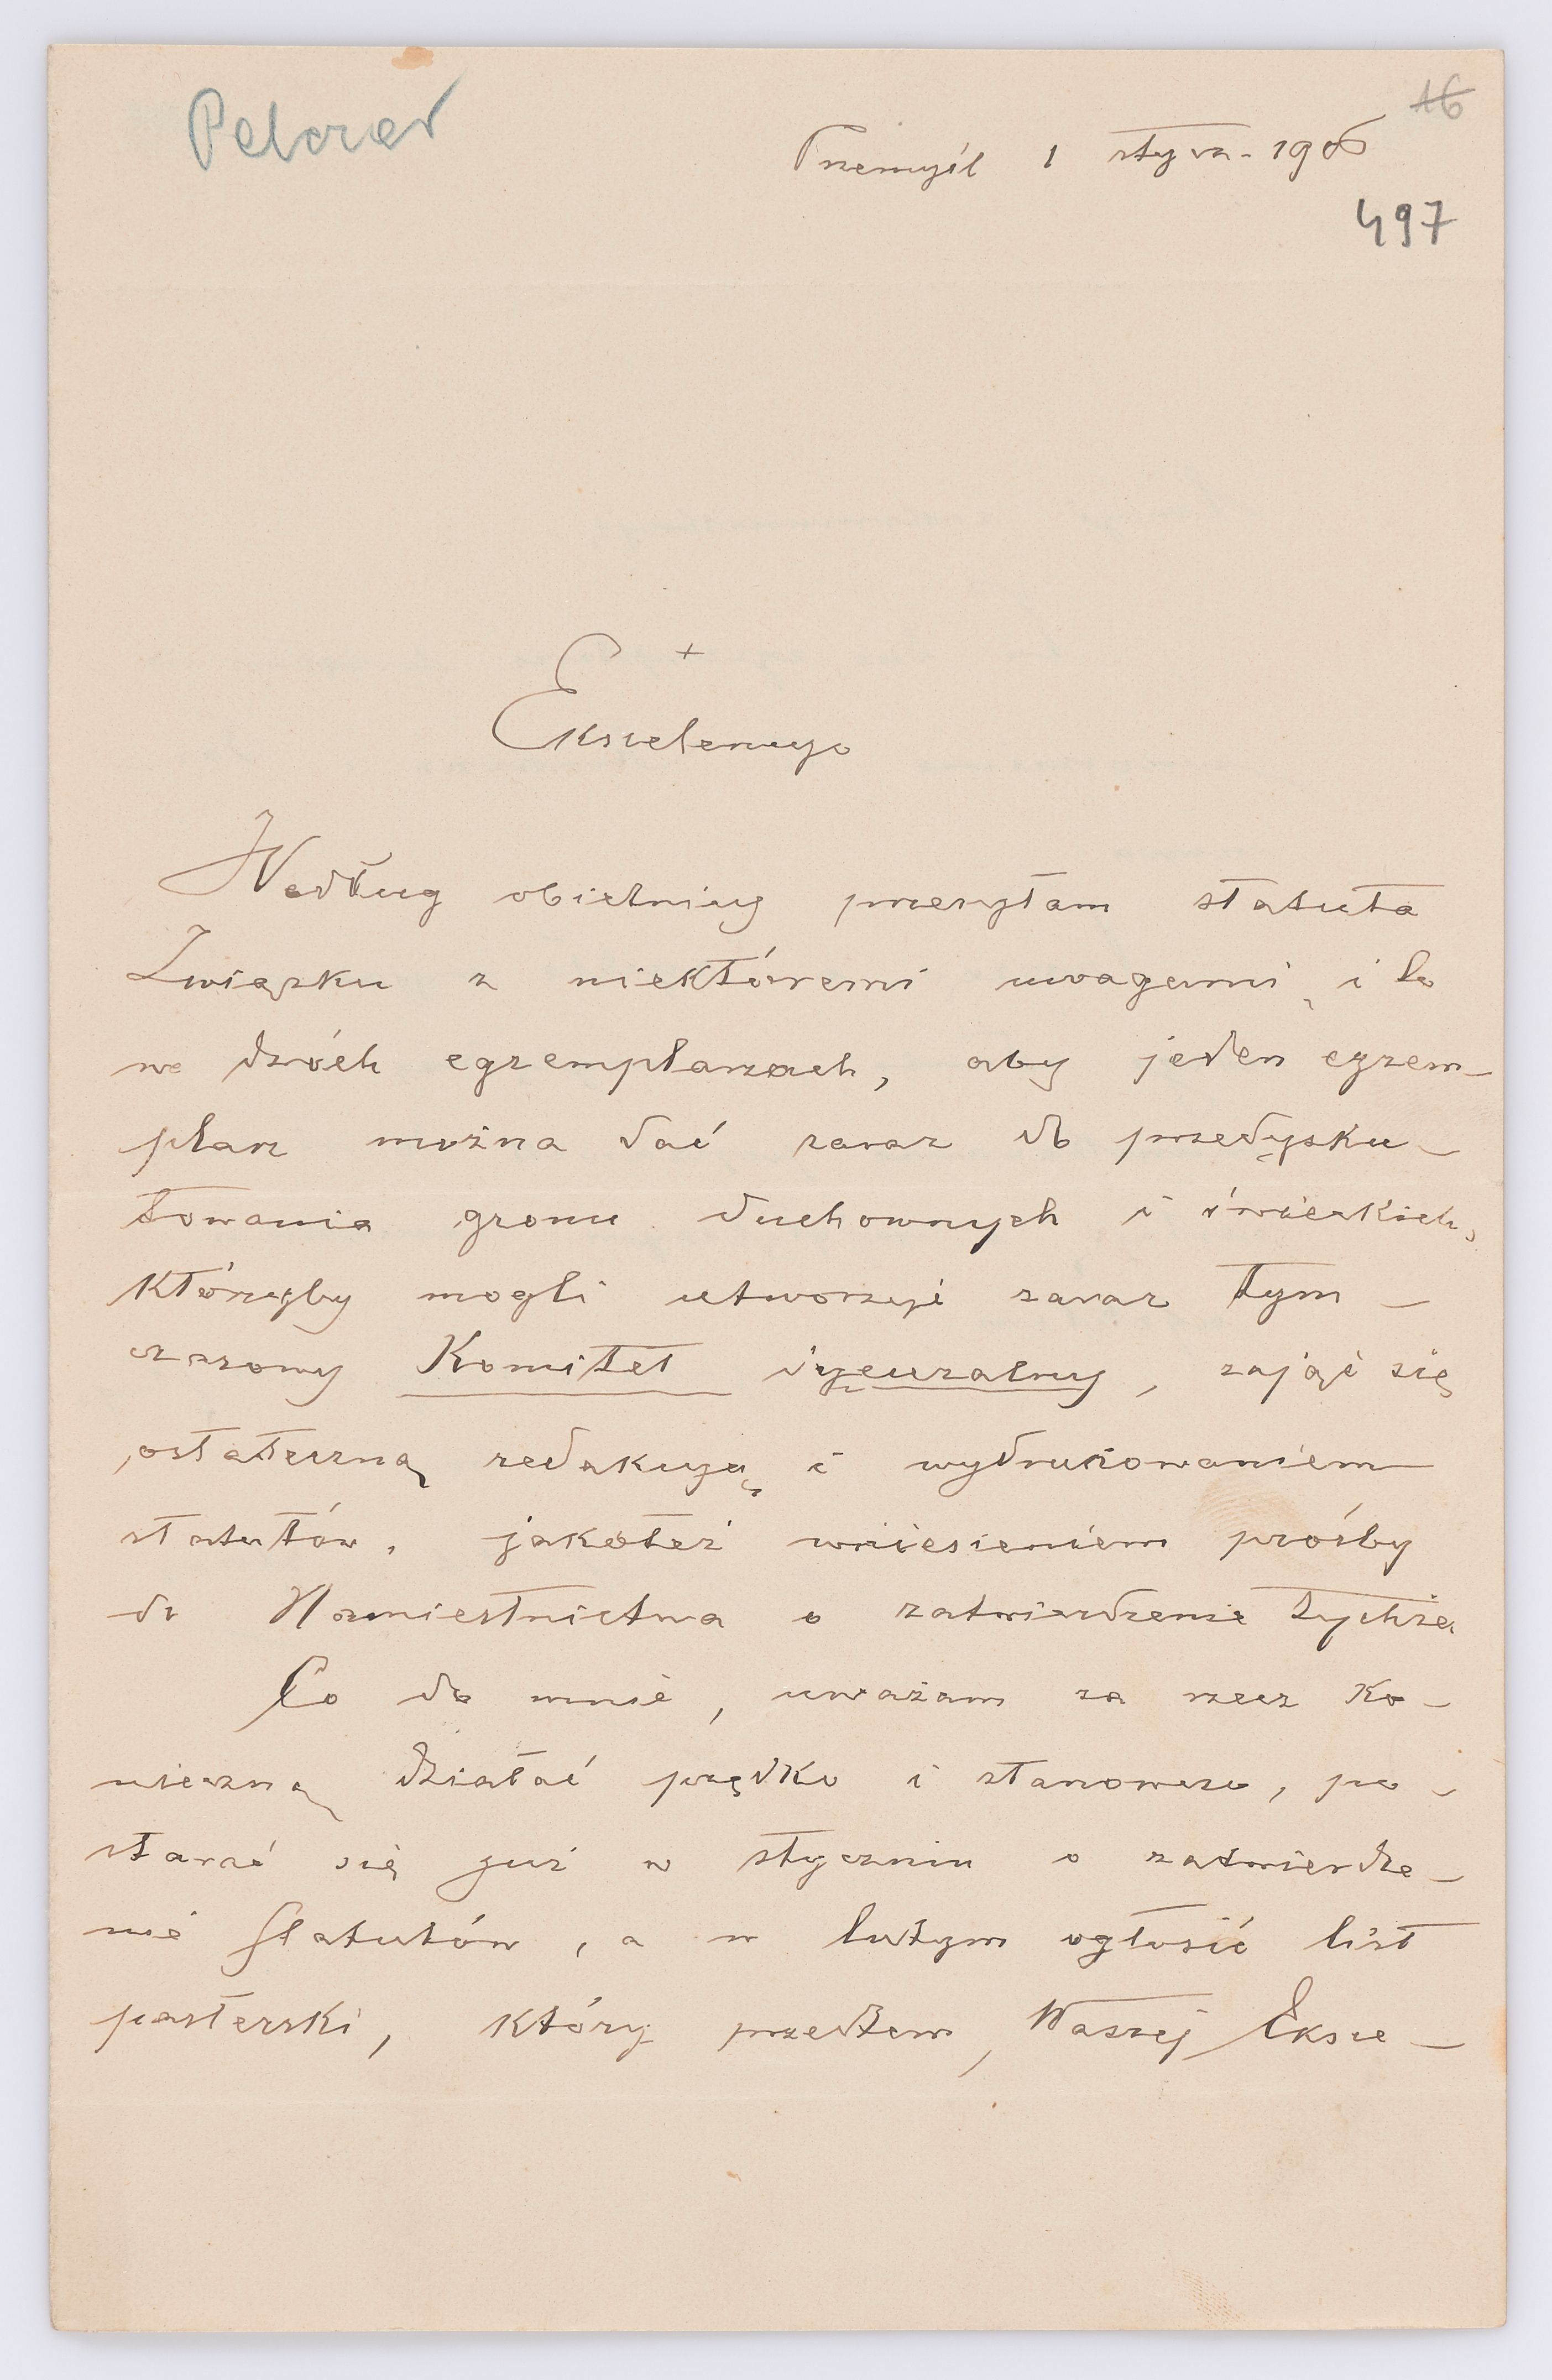 Pelczar
16
Przemyśl 1 stycz. 1906
497
+
Ekscelencyo
Według obietnicy przesyłam statuta
Związku z niektóremi uwagami, i to
we dwóch egzemplarzach, aby jeden egzem-
plarz można dać zaraz do przedysku-
towania gronu duchownych i świeckich,
którzyby mogli utworzyć zaraz tym-
czasowy Komitet dyecezalny, zająć się
ostateczną redakcyą i wydrukowaniem
statutów, jakoteż wniesieniem prośby
do Namiestnictwa o zatwierdzenie tychże.
Co do mnie, uważam za rzecz ko-
nieczną działać prędko i stanowczo, po-
starać się już w styczniu o zatwierdze-
nie Statutów, a w lutym ogłosić list
pasterski, który przedtem Waszej Eksce-